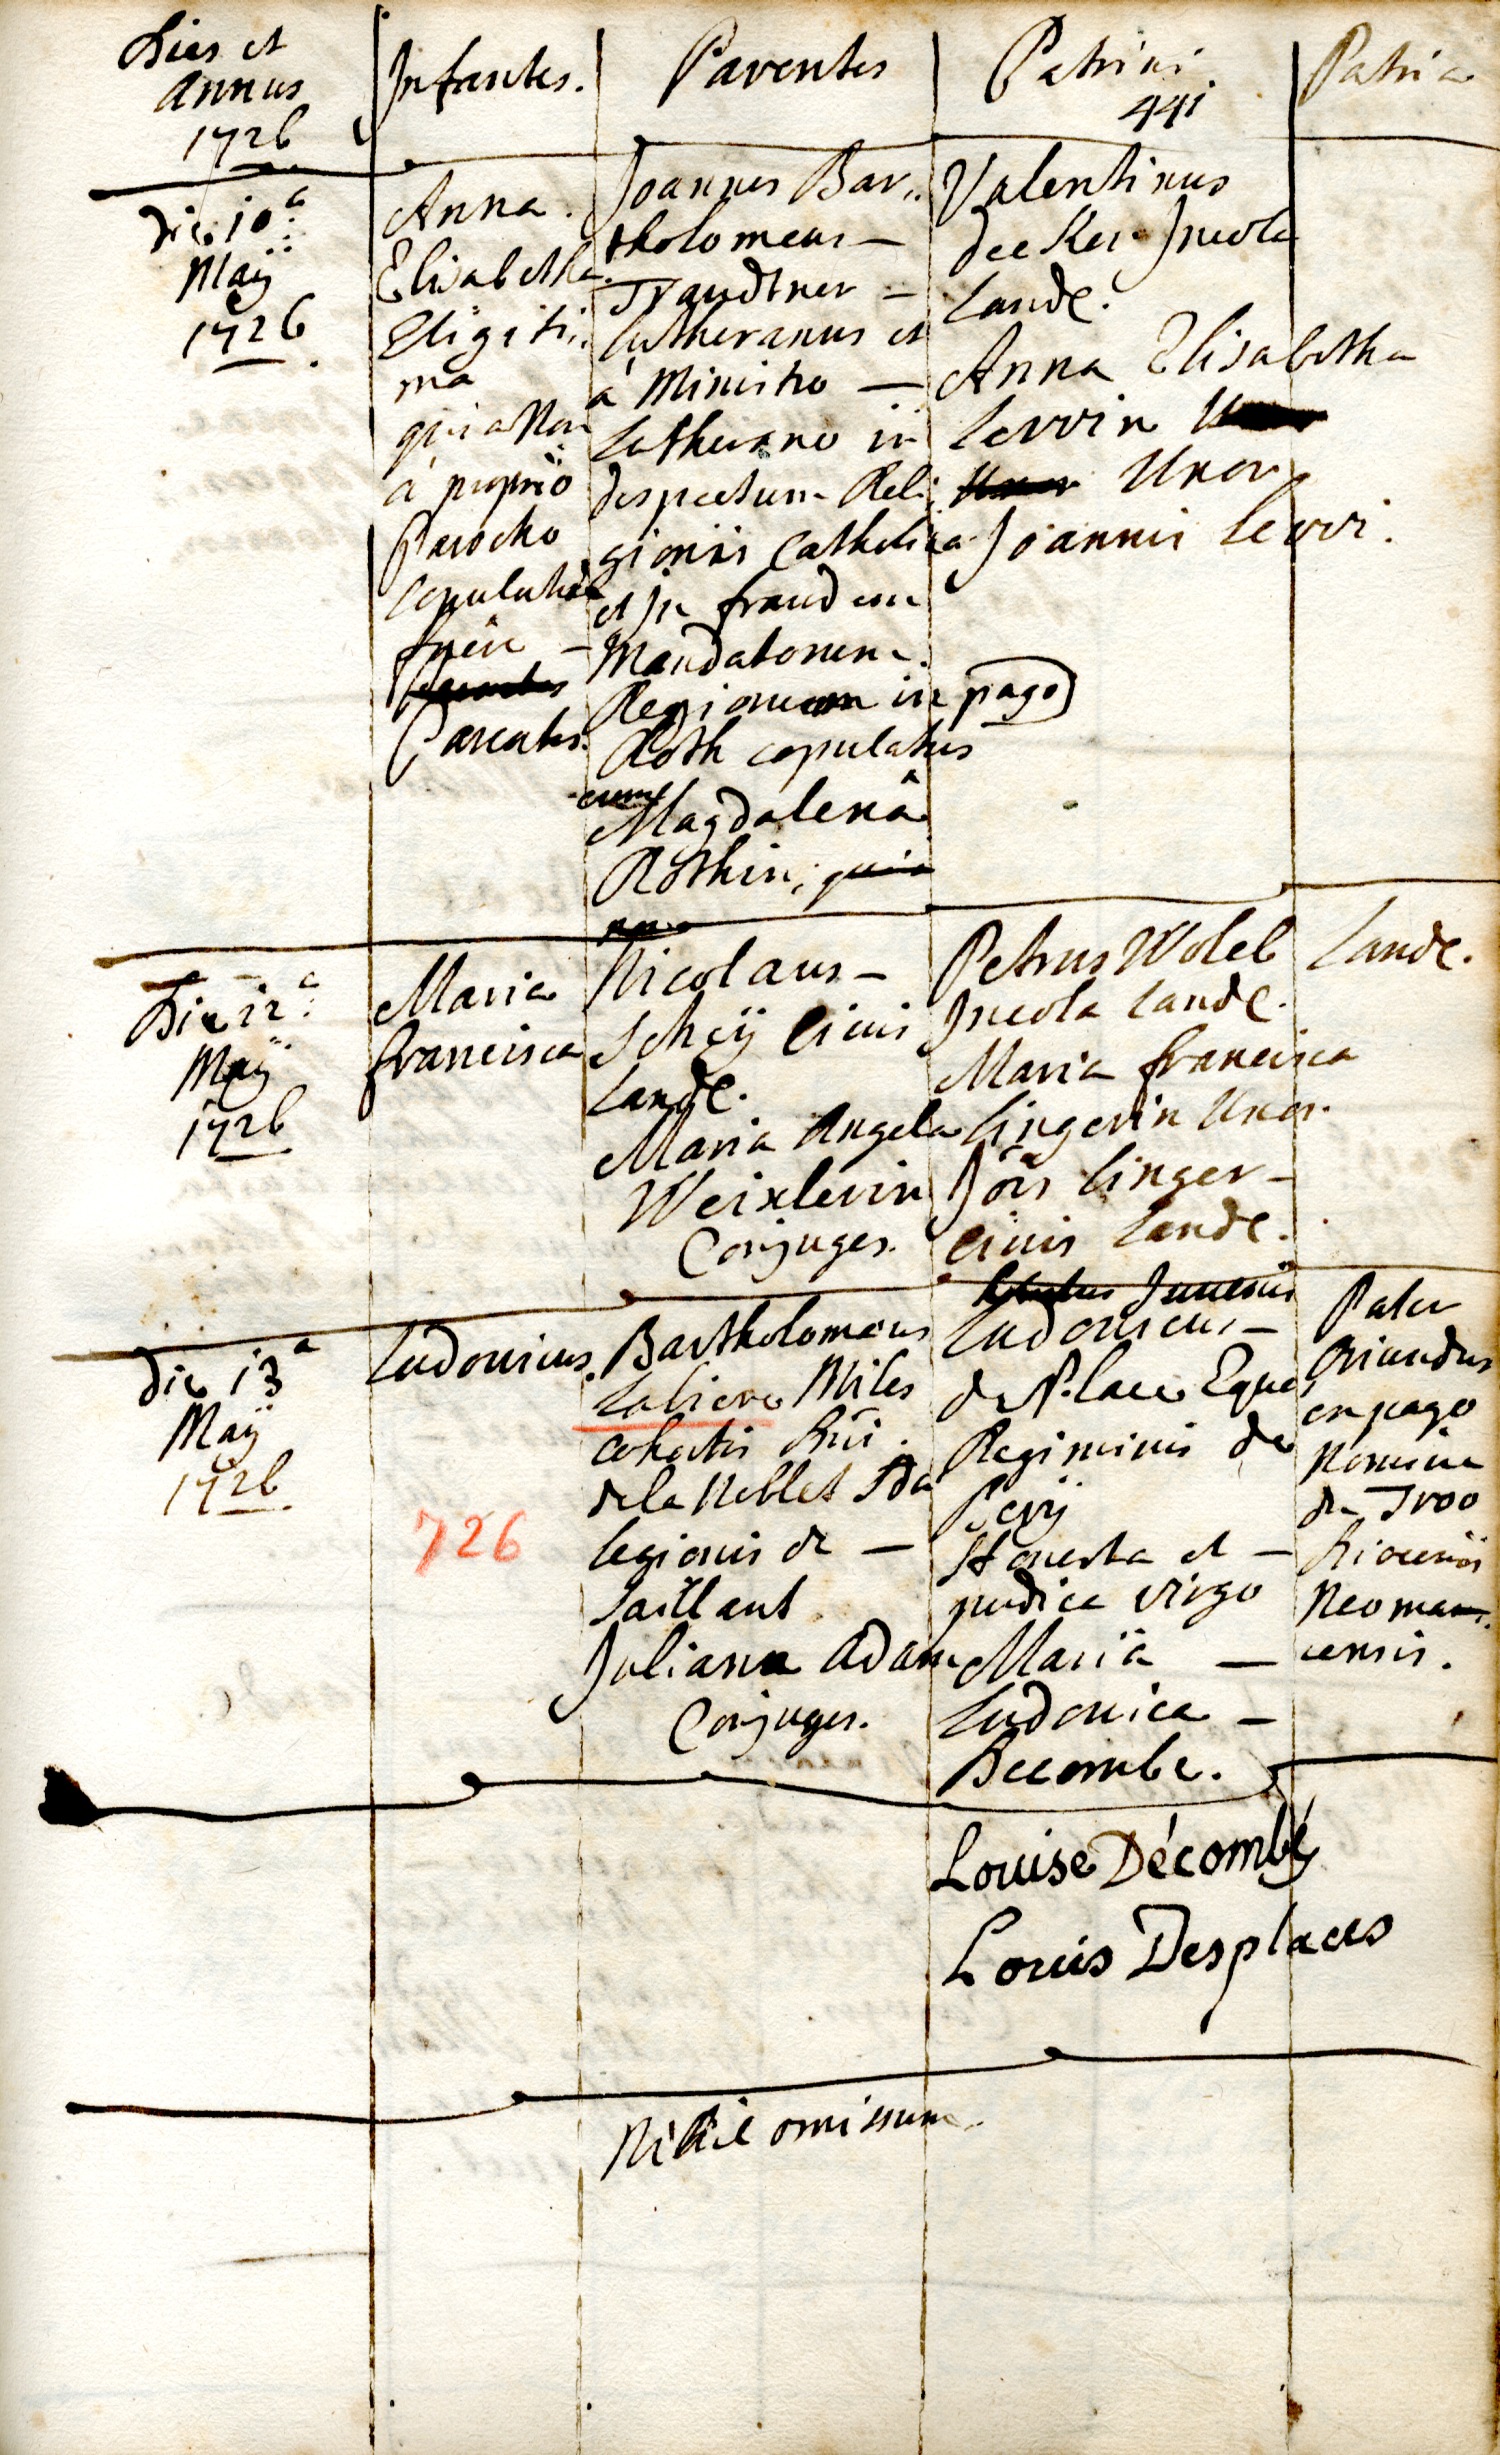 Dies et
Annus
1726
Infantes.
Parentes
Patrini.
441
Patria
die 10a
Maÿ
1726
Anna
Elisabetha
Eligiti,,
ma
quia Non
à proprio
Parocho
copulati
fuêre –
Parentes.
Joannes Bar,,
tholomeus –
Traudtner –
lutheranus et
à Ministro –
Lutherano in
despectum Reli
gionis Catholica
et In fraudem
Mandatorum
Regiorum in pago
Roth copulatus
cum
Magdalenâ
Rothin; quia
non
Valentinus
decker Incola
Landæ.
Anna Elisabetha
Levvin
Uxor
Joannis Levvi.
Die 12a
Maÿ
1726
Maria
francisca
Nicolaus –
Scheÿ Civis
Landæ.
Maria Angela
Weixlerin
Conjuges.
Petrus Woleb
Incola Landæ.
Maria francisca
lingerin Uxor.
Jois linger –
civis Landæ.
Landæ.
die 13a
Maÿ
1726
Ludovicus.
726
Bartholomeus
Laliere Miles
cohortis Dni.
de la Nobles
legionis de –
Saillant
Juliana Adam
Conjuges.
Ludovicus –
de Place Eques
Regiminis de
Perÿ
Honesta et –
pudica virgo
Maria –
Ludovica –
Becombe.
Pater
Oriundus
ex pago
Nomine
de Troo
Neoman
censis.
Louise Décombé
Louis Desplaces
Nihil omissum